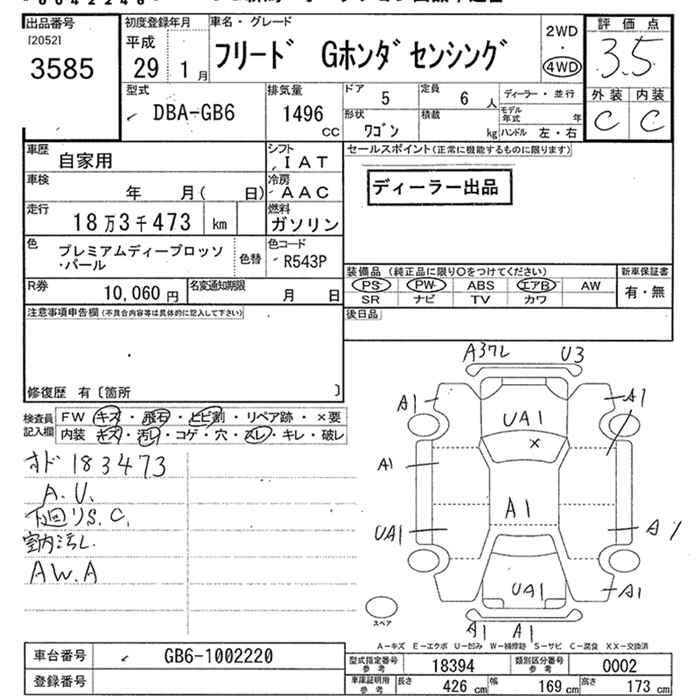 出品番号
I20521
3585
初度登録年月
平成
29 1月
車名・グレード
フリード Gホンダセンシング
2WD
・
4WD
評価点
3.5
外装 内装
C C
型式
DBA-GB6
排気量
1496
CC
ドア 5
定員 6人
形状 ワゴン
積載 kg
ディーラー・並行
モデル年式 年
ハンドル 左・右
車歴 自家用
シフト IAT
セールスポイント(正常に機能するものに限ります)
ディーラー出品
車検 年 月( 日)
冷房 AAC
走行 18万3千473 km
燃料 ガソリン
色 プレミアムディープロッソ・パール
色替
色コード R543P
R券 10,060円
名変通知期限 月 日
装備品(純正品に限り○をつけてください)
PS PW ABS エアB AW
SR ナビ TV カワ
新車保証書
有・無
後日品
注意事項申告欄(不具合内容等は具体的に記入して下さい)
修復歴 有〔箇所 〕
検査員記入欄
FW キズ・飛石・ヒビ割・リペア跡・×要
内装 キズ・汚レ・コゲ・穴・スレ・キレ・破レ
オド 183473
A.U.
下回りS.C.
室内汚レ
AW.A
A37L U3
A1 UA1 A1
×
A1
A1
UA1 A1
UA1 A1
A1 A1
スペア
A-キズ E-エクボ U-凹み W-補修跡 S-サビ C-腐食 XX-交換済
車台番号 GB6-1002220
登録番号
型式指定番号 参考 18394
類別区分番号 参考 0002
車庫証明用 参考
長さ 426cm 幅 169cm 高さ 173cm